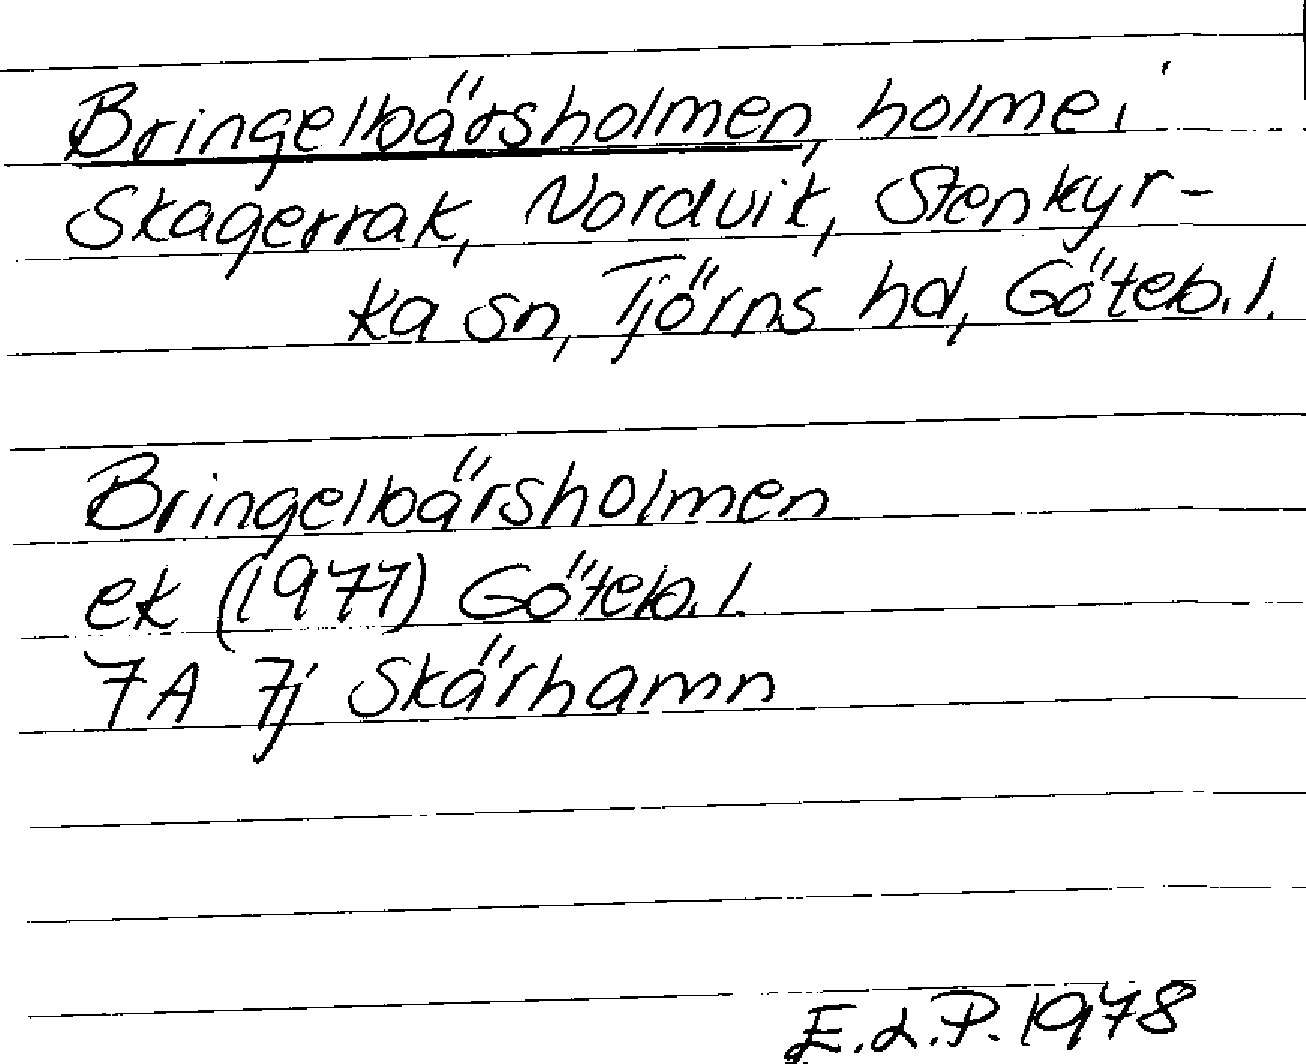 Bringelbärsholmen, holme i
Skagerrak, Nordvik, Stenkyr-
ka sn, Tjörns hd, Göteb. l.
Bringelbärsholmen
ek (1977) Göteb. l.
7A 7j Skärhamn
E.d.P. 1978